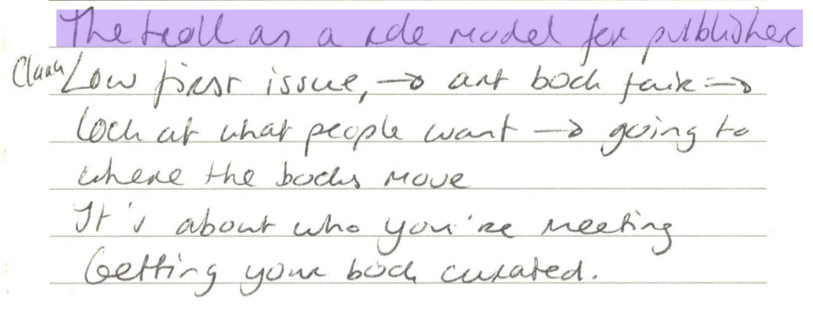 The troll as a role model for publisher
Low first issue, → art book fair →
Look at what people want → going to
where the books move
It's about who you're meeting
Getting your book curated.